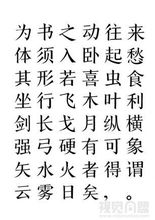 为书之动往来
体须入卧起愁
其形若喜虫食
坐行飞木叶利
剑长戈月纵横
强弓硬有可象
矢水火者得谓
云雾日矣，。